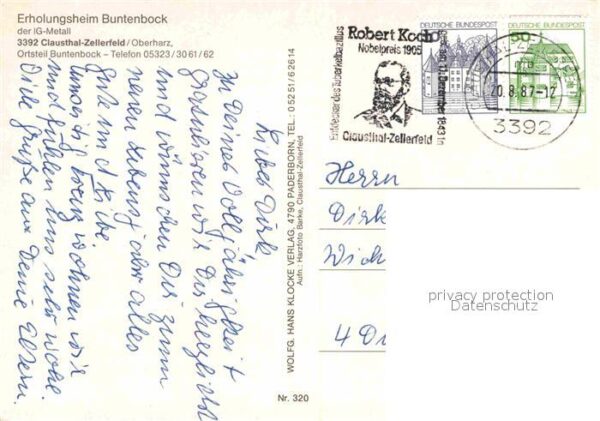 Erholungsheim Buntenbock
der IG-Metall
3392 Clausthal-Zellerfeld / Oberharz,
Ortsteil Buntenbock – Telefon 05323/30 61 / 62
Lieber Dirk
Zu Deiner Volljährigkeit
gratulieren wir Dir herzlichst
und wünschen Dir zum
neuen Lebensj aber alles
Gute und Liebe.
wohnen wir
und fühlen uns sehr wohl.
Viele Grüße aus Deine Eltern.
WOLFG. HANS KLOCKE VERLAG, 4790 PADERBORN, TEL.: 05251/62614
Aufn.: Harzfoto Barke, Clausthal-Zellerfeld
Nr. 320
Robert Koch
Nobelpreis 1905
Entdecker des Tuberkelbazillus
geboren 11. Dezember 1843 in
Clausthal-Zellerfeld
DEUTSCHE BUNDESPOST
DEUTSCHE BUNDESPOST
50
20.8.87-12
3392
Herrn
Dirk
Wich
4 D
privacy protection
Datenschutz